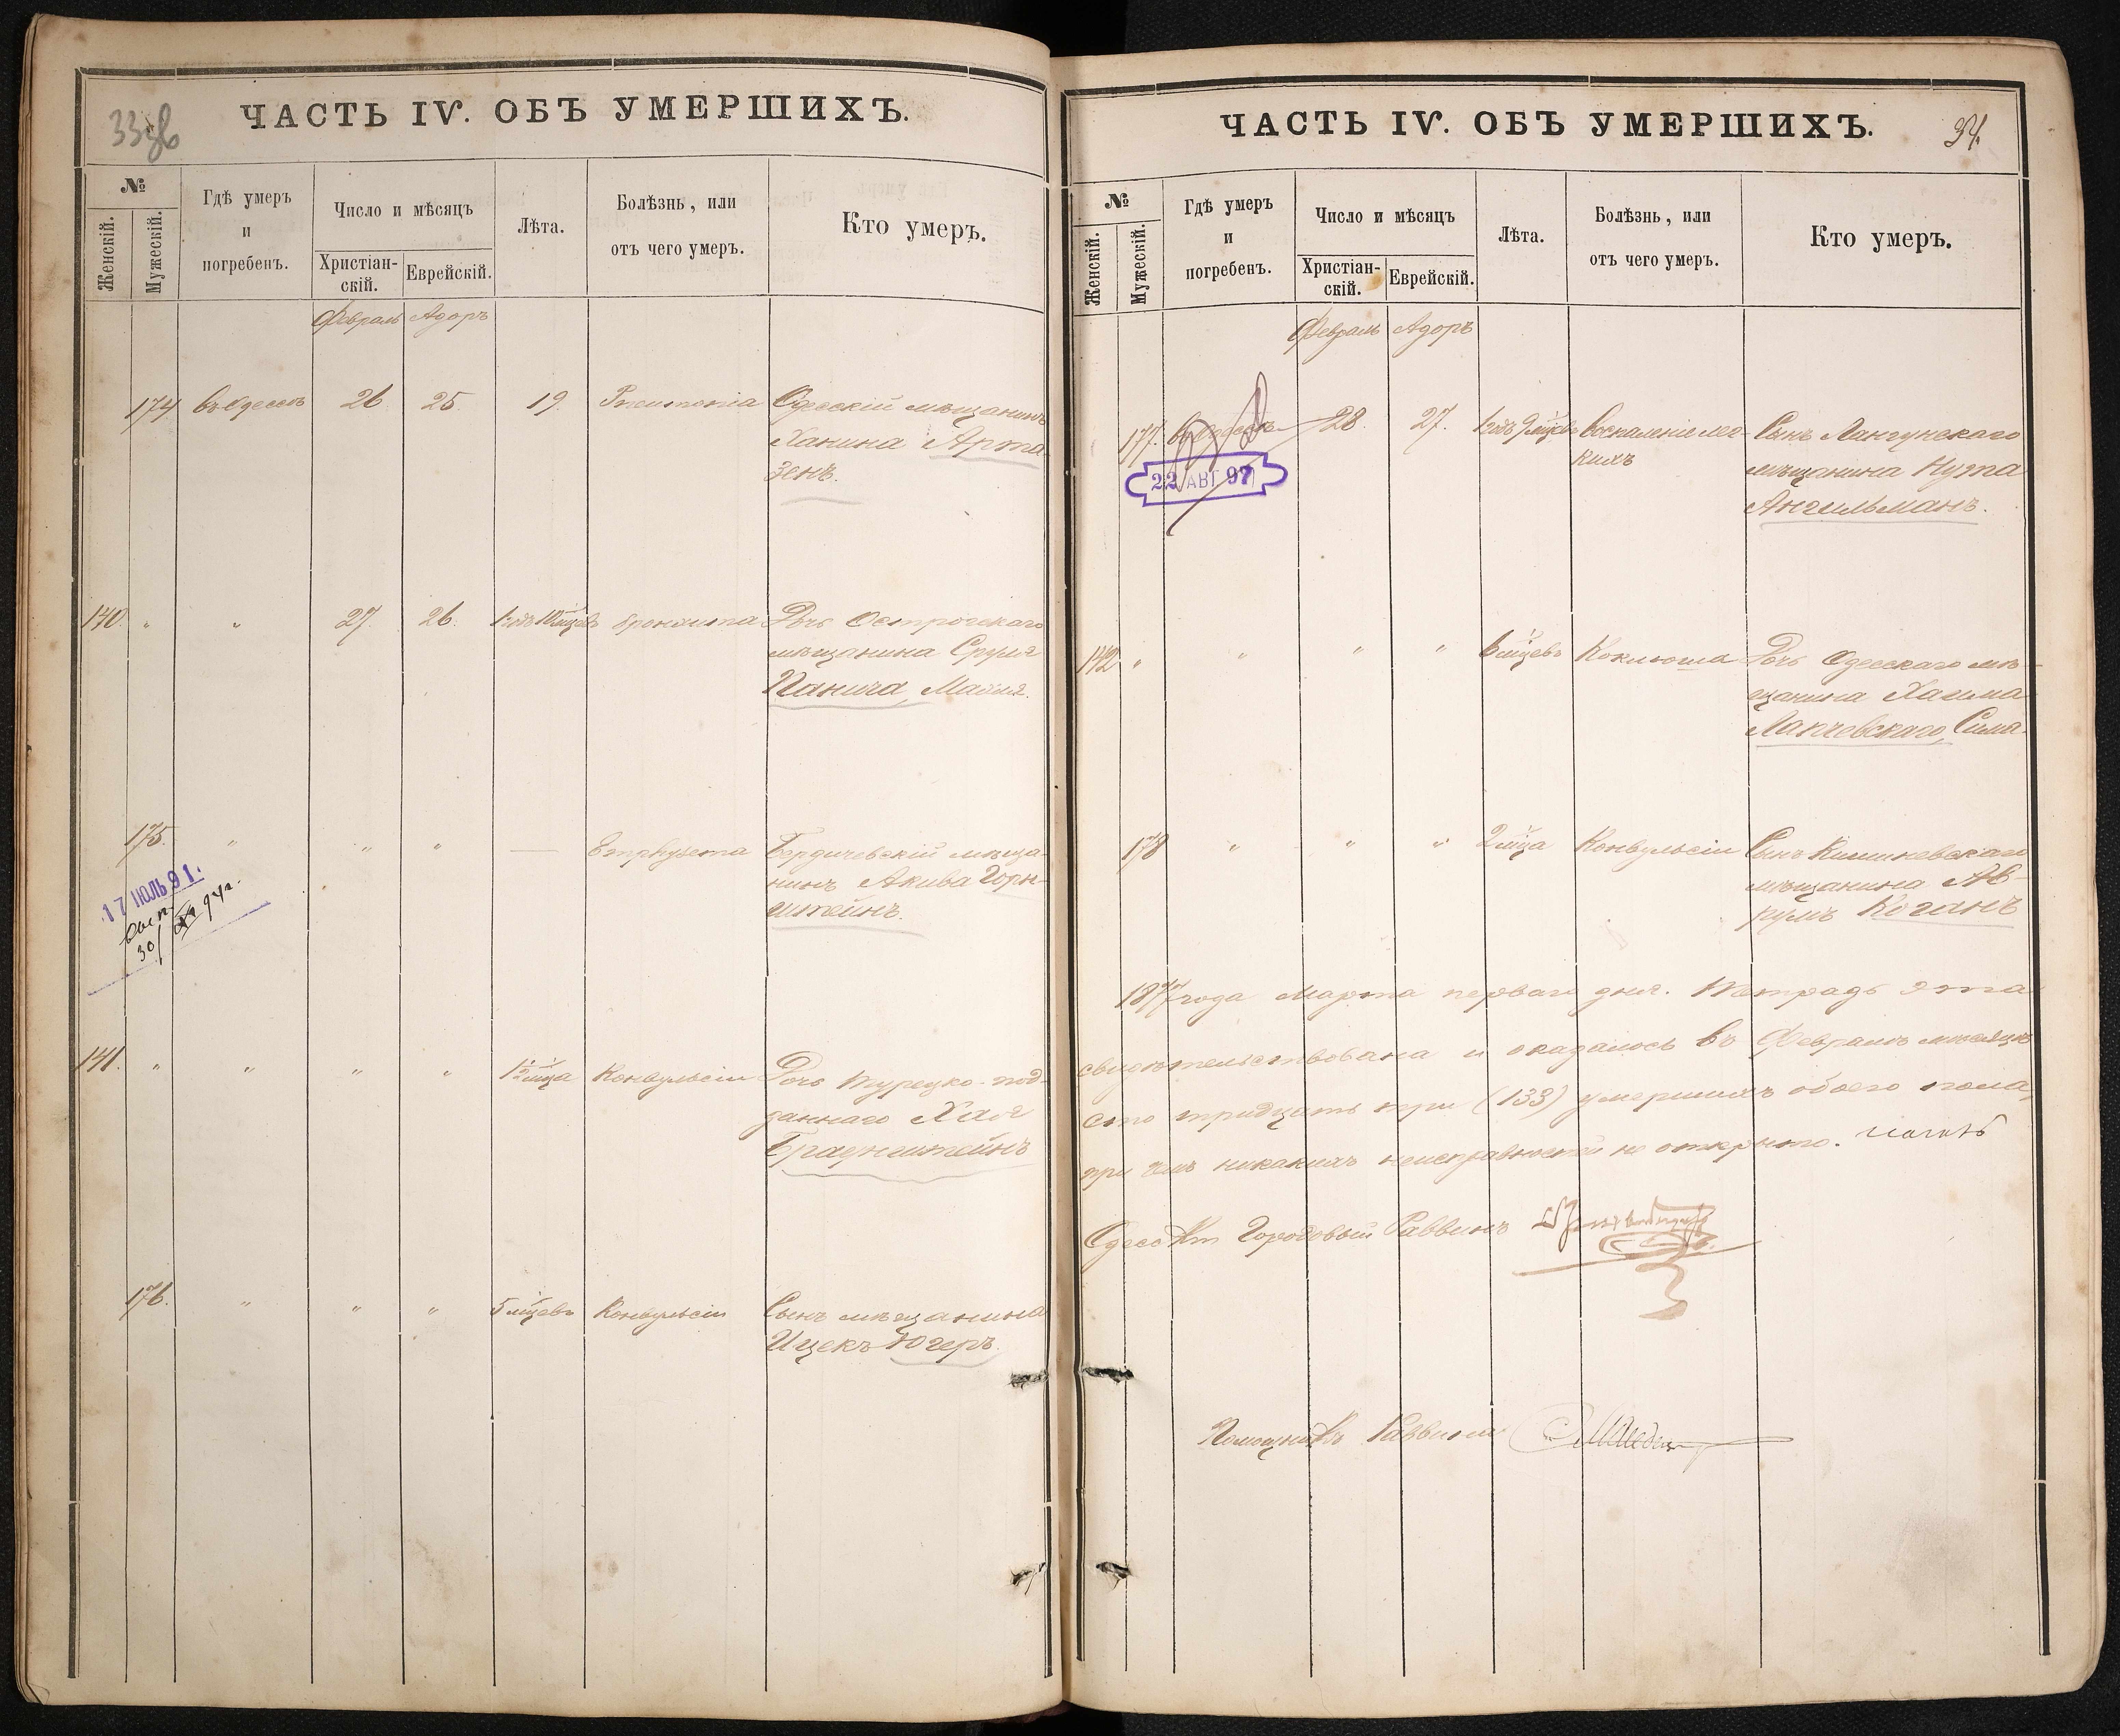 33об
ЧАСТЬ IV. ОБЪ УМЕРШИХЪ.
№
Женскій.
Мужескій.
Гдѣ умеръ
и
погребенъ.
Число и мѣсяцъ
Христіан-
скій.
Еврейскій.
Лѣта.
Болѣзнь, или
отъ чего умеръ.
Кто умеръ.
Февраль Адоръ
174 въ Одессѣ 26 25 19. Pneumonia Одесскій мѣщанинъ
Ханина Арта-
зенъ.
140. " " 27. 26. 1 годъ 10 мѣсцевъ Бронхита Дочь Острогскаго
мѣщанина Сруля
Панича, Малія.
175. " " " — Emphysema Бердичевскій мѣща-
нинъ Акива Горн-
штейнъ.
17 ІЮЛЬ 91.
30/XI 94 г.
141. " " " " 1½ мѣца Конвульсіи Дочь Турецко-под-
даннаго Хая
Браунштейнъ
176. " " " 5 мѣцевъ Конвульсіи Сынъ мѣщанина
Ицекъ Югеръ.
ЧАСТЬ IV. ОБЪ УМЕРШИХЪ.
34.
№
Женскій.
Мужескій.
Гдѣ умеръ
и
погребенъ.
Число и мѣсяцъ
Христіан-
скій.
Еврейскій.
Лѣта.
Болѣзнь, или
отъ чего умеръ.
Кто умеръ.
Февраль Адоръ
177. въ Одессѣ 28. 27. 1 годъ 9 мѣцевъ Воспаленіе лег- Сынъ Лангунскаго
кихъ мѣщанина Нута
Ангильманъ.
22 АВГ 97
142 " " " " 6 мѣцевъ Коклюша Дочь Одесскаго мѣ-
щанина Хаима
Лапчевскаго, Сима.
178 " " " 2 мѣца Конвульсіи Сынъ Кишиневскаго
мѣщанина Ав-
румъ Коганъ
1877 года Марта перваго дня. Тетрадь эта
свидѣтельствована и оказалось въ Февралѣ мѣсяцѣ
сто тридцать три (133) умершихъ обоего пола,
при чемъ никакихъ неисправностей не открыто.
Одесскій Городовый Раввинъ
Помощникъ Раввина